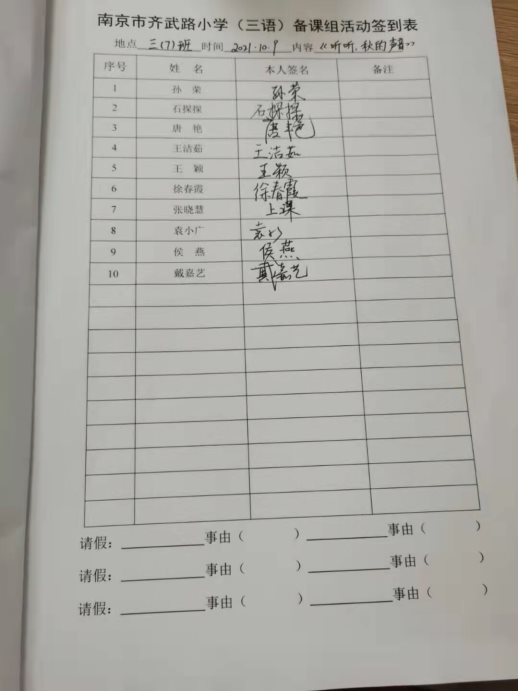 南京市齐武路小学（三语）备课组活动签到表
地点 三(7)班 时间 2021.10.9 内容《听听,秋的声音》
序号 姓 名 本人签名 备注
1 孙 荣 孙荣
2 石探探 石探探
3 唐 艳 唐艳
4 王洁茹 王洁茹
5 王 颖 王颖
6 徐春霞 徐春霞
7 张晓慧 上课
8 袁小广 袁小广
9 侯 燕 侯燕
10 戴嘉艺 戴嘉艺
请假：__________事由（ ）__________事由（ ）
请假：__________事由（ ）__________事由（ ）
请假：__________事由（ ）__________事由（ ）